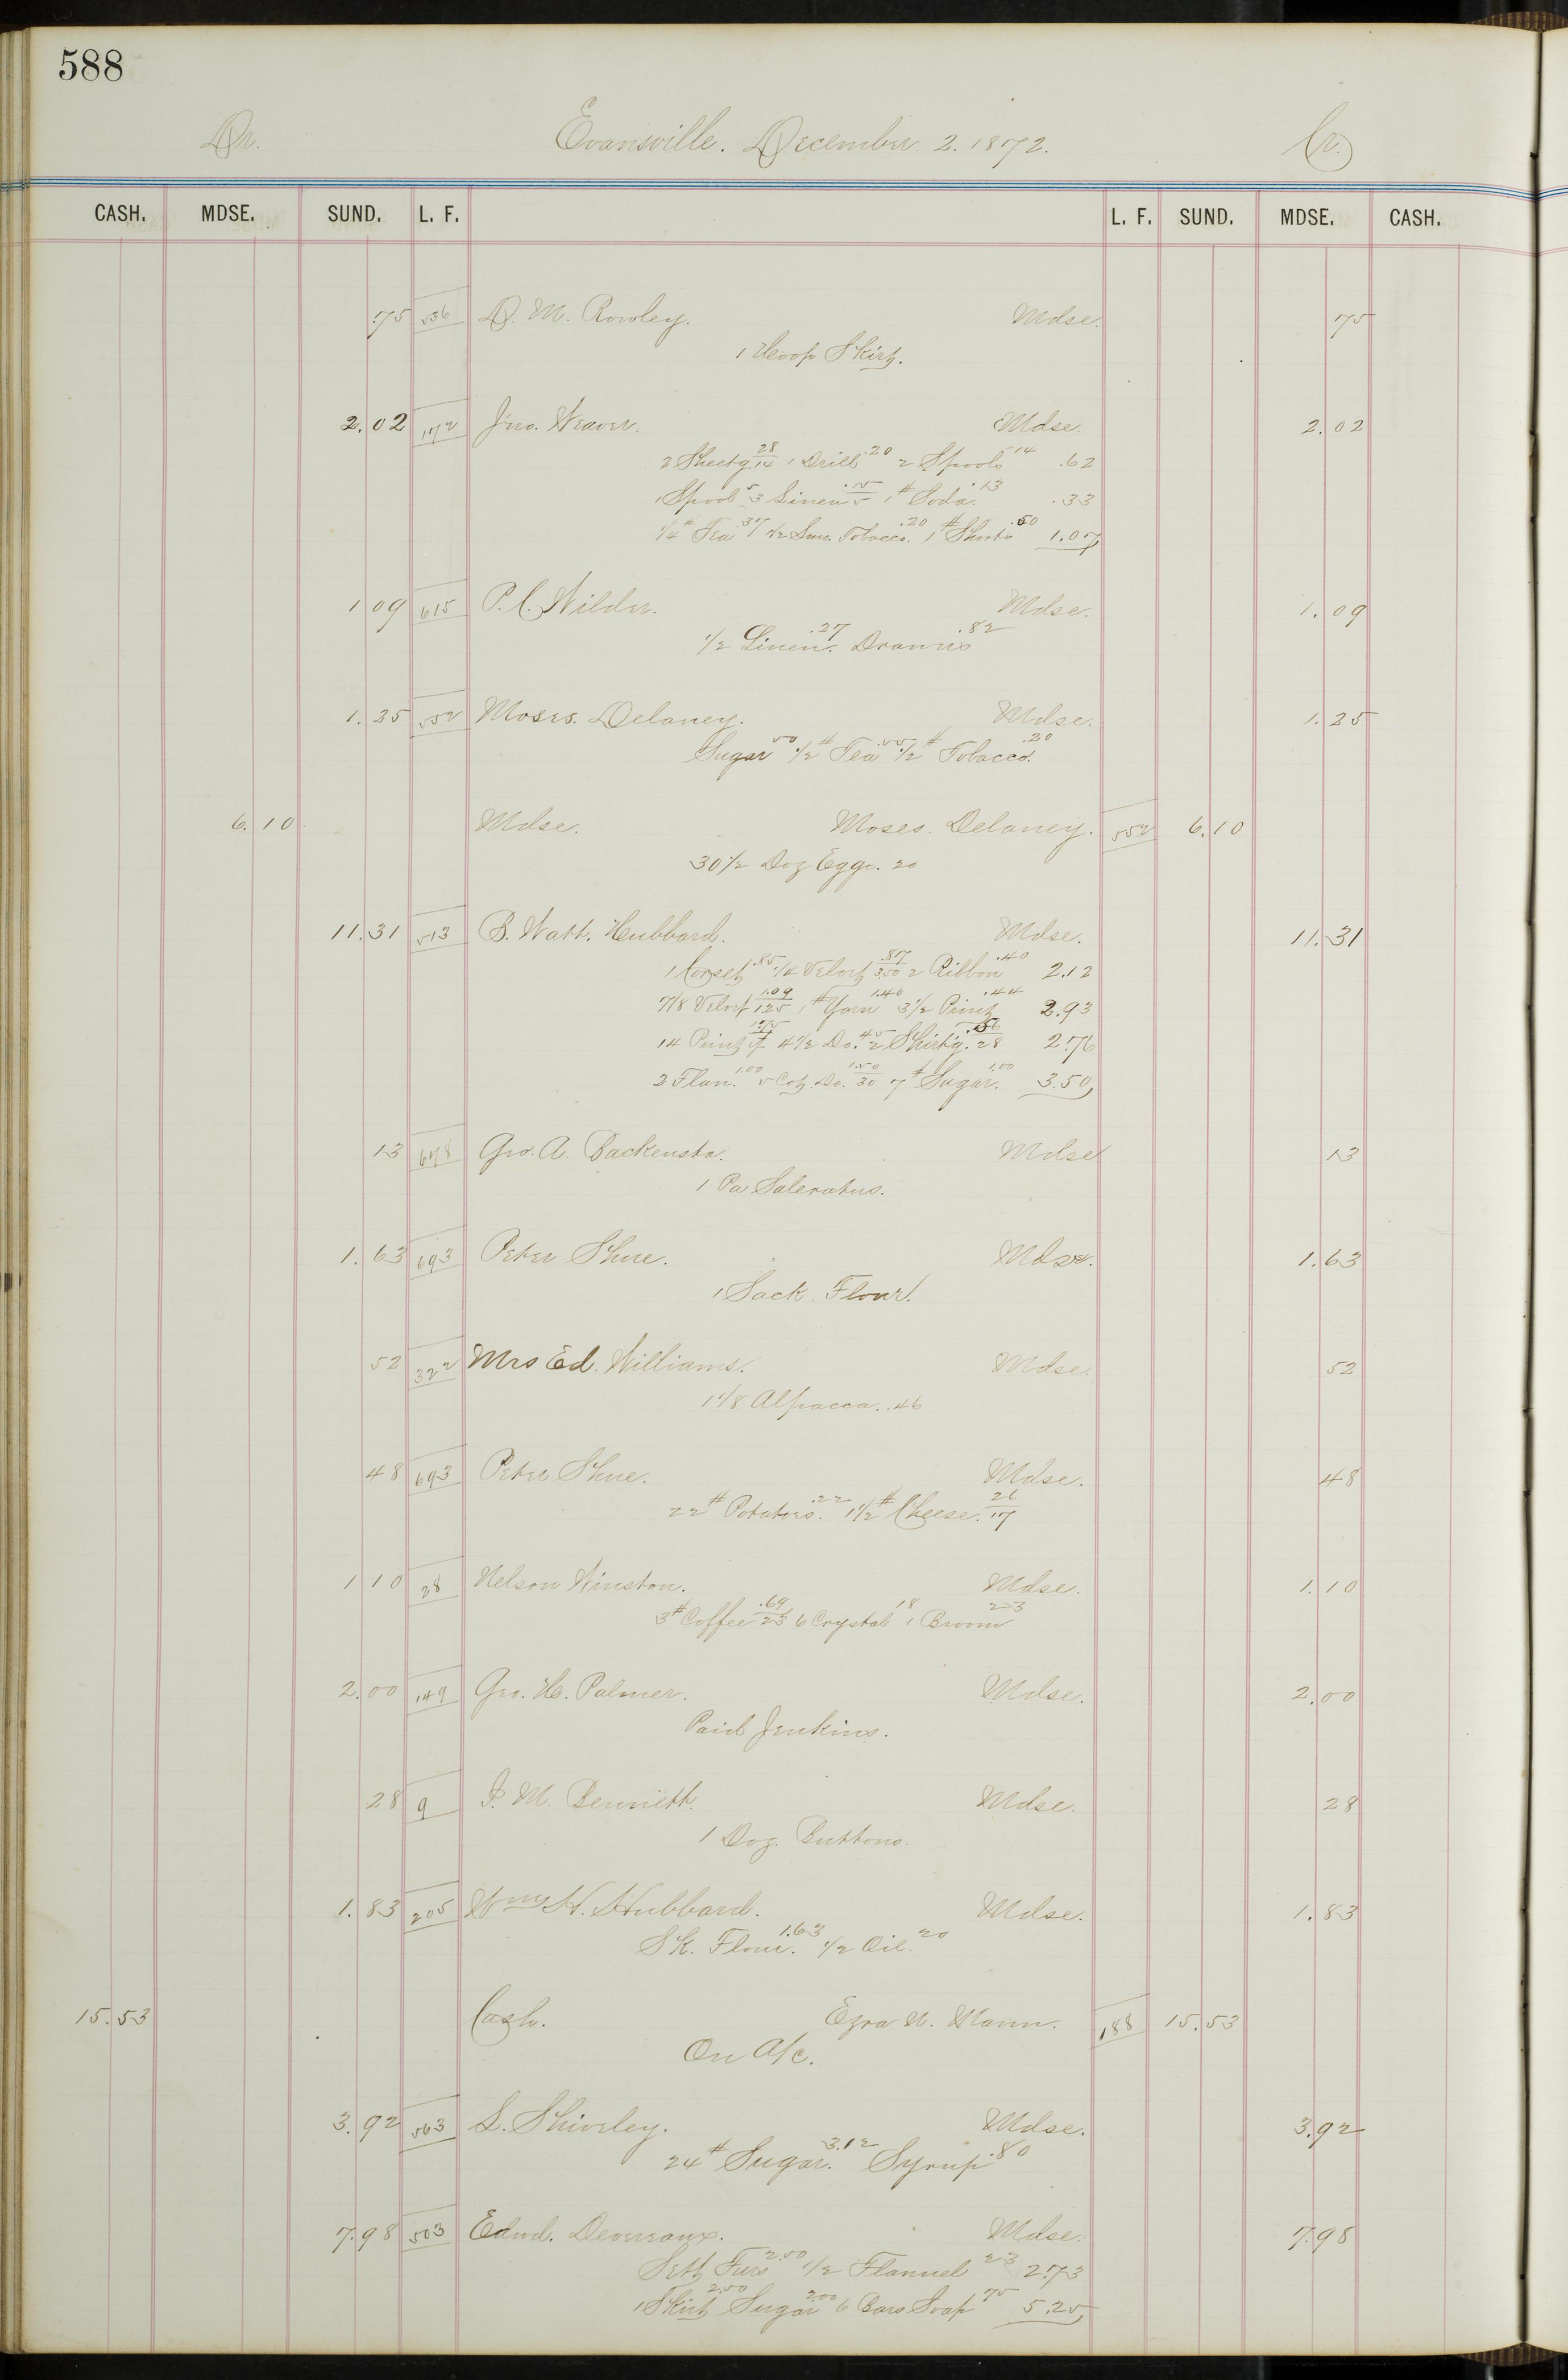 588
Dr. Evansville. December. 2. 1872. Cr.
CASH. MDSE. SUND. L. F. L. F. SUND. MDSE. CASH.
.75 536 D. M. Rowley. Mdse. 75
1 Hoop Skirt.
2.02 172 Jno. Weaver. Mdse. 2.02
2 Sheetg. 28/14 1 Drill .20 2 Spools 14 .62
1 Spool 5 3 Linen .15/5 1# Soda. .13 .33
1/4# Tea 37 1/2 Smo. Tobacco. .20 1# Shorts .50 1.07
1 09 615 P. C. Wilder. Mdse. 1.09
1/2 Linen. .27 Drawers .82
1.25 552 Moses. Delaney. Mdse. 1.25
Sugar 50 1/2# Tea .55 1/2# Tobacco. .20
6.10 Mdse. Moses. Delaney. 552 6.10
30 1/2 Doz Eggs. 20
11.31 513 S. Watt. Hubbard. Mdse. 11.31
1 Corset .85 1/4 Velvet .87/3.50 2 Ribbon .40 2.12
7/8 Velvet 1.09/1.25 1# Yarn 1.40 3 1/2 Print .44 2.93
14 Print 4 1/2 Do. 45 2 Shirtg. .56/28 2.76
2 Flan. 1.00 5 Cot. Do. 1.50/30 7# Sugar. 1.00 3.50
13 678 Geo. A. Backensto. Mdse 13
1 Pa Saleratus.
1.63 693 Peter Shue. Mdse. 1.63
1 Sack Flour.
52 322 Mrs Ed. Williams. Mdse. 52
1 1/8 Alpacca. .46
48 693 Peter Shue. Mdse. 48
22# Potatoes. .22 1 1/2# Cheese. 26/17
1 10 28 Nelson Winston. Mdse. 1.10
3# Coffee .69/23 6 Crystal 18 1 Broom 23
2.00 149 Geo. H. Palmer. Mdse. 2.00
Paid Jenkins.
28 9 I. M. Bennett. Mdse. 28
1 Doz. Buttons.
1.83 205 Wm H. Hubbard. Mdse. 1.83
Sk. Flour. 1.63 1/2 Oil. 20
15.53 Cash. Ezra N. Mann. 188 15.53
On A/c.
3.92 563 L. Shiveley. Mdse. 3.92
24# Sugar. 3.12 Syrup .80
7.98 503 Edwd. Devereaux. Mdse. 7.98
Sett Furs 2.50 1/2 Flannel 23 2.73
1 Skirt 2.50 Sugar 2.00 6 Bars Soap 75 5.25